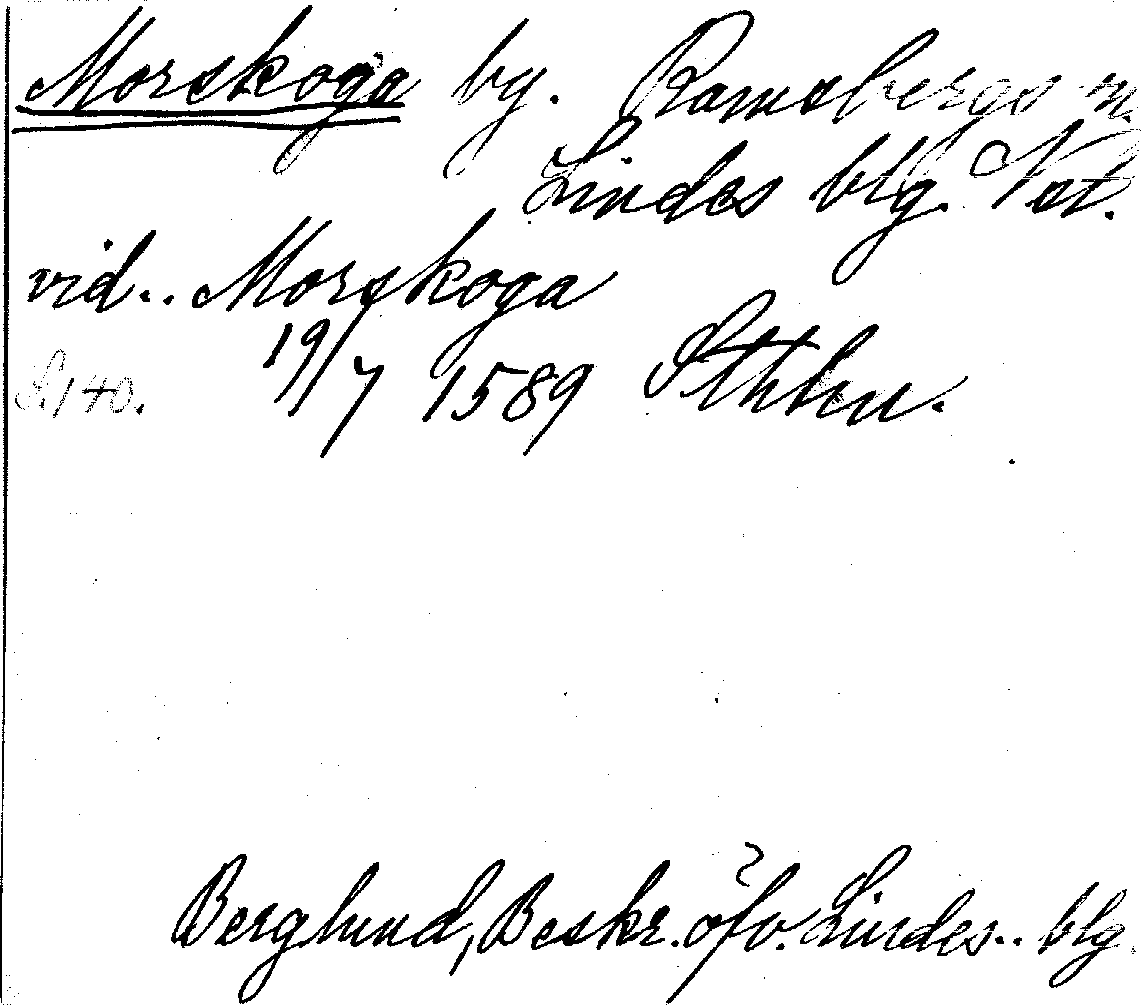 Morskoga by. Ramsbergs sn.
Lindes blg. Vstl.
vid.. Morskoga
19/7 1589 Sthlm.
S. 140.
Berglund, Beskr. öfv. Lindes.. blg.